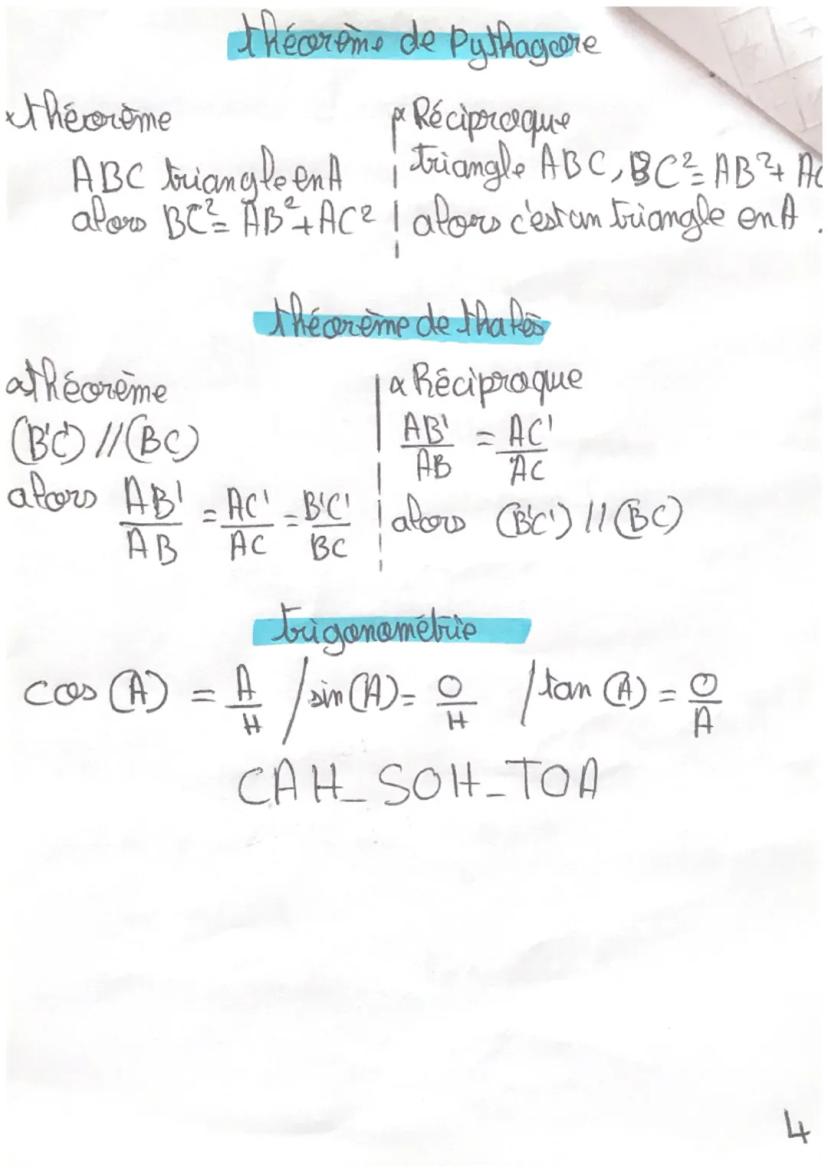 théorème de Pythagore
théorème
ABC triangle en A
alors BC² = AB² + AC²
Réciproque
triangle ABC, BC² = AB² + AC
alors c'est un triangle en A.
théorème de thalès
théorème
(B'C') // (BC)
alors AB'/AB = AC'/AC = B'C'/BC
Réciproque
AB'/AB = AC'/AC
alors (B'C') // (BC)
trigonométrie
cos (A) = A/H / sin (A) = O/H / tan (A) = O/A
CAH_SOH_TOA
4